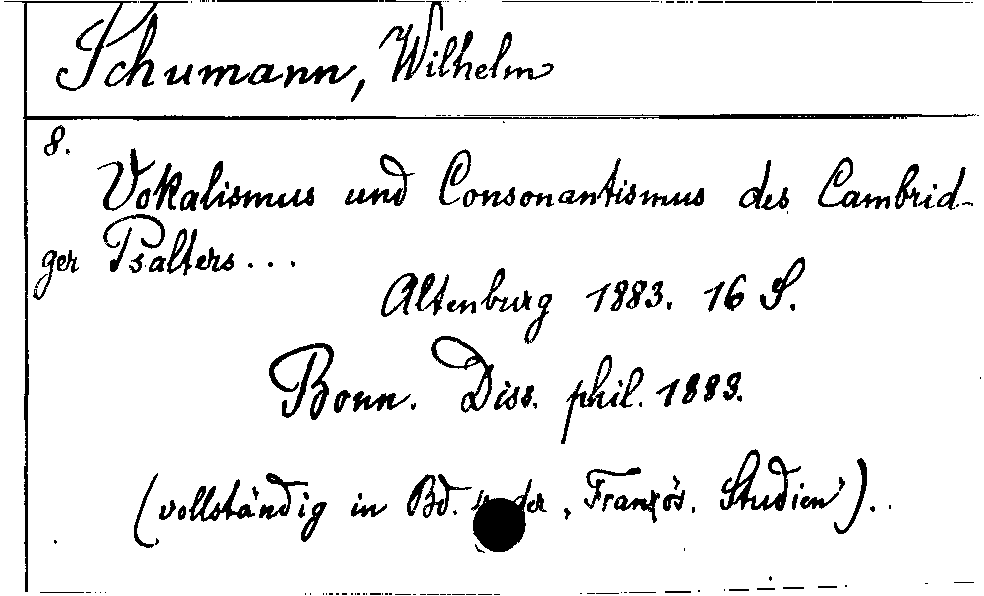 Schumann, Wilhelm
8.
Vokalismus und Consonantismus des Cambrid-
ger Psalters...
Altenburg 1883. 16 S.
Bonn. Diss. phil. 1883.
(vollständig in Bd. der 'Französ. Studien').